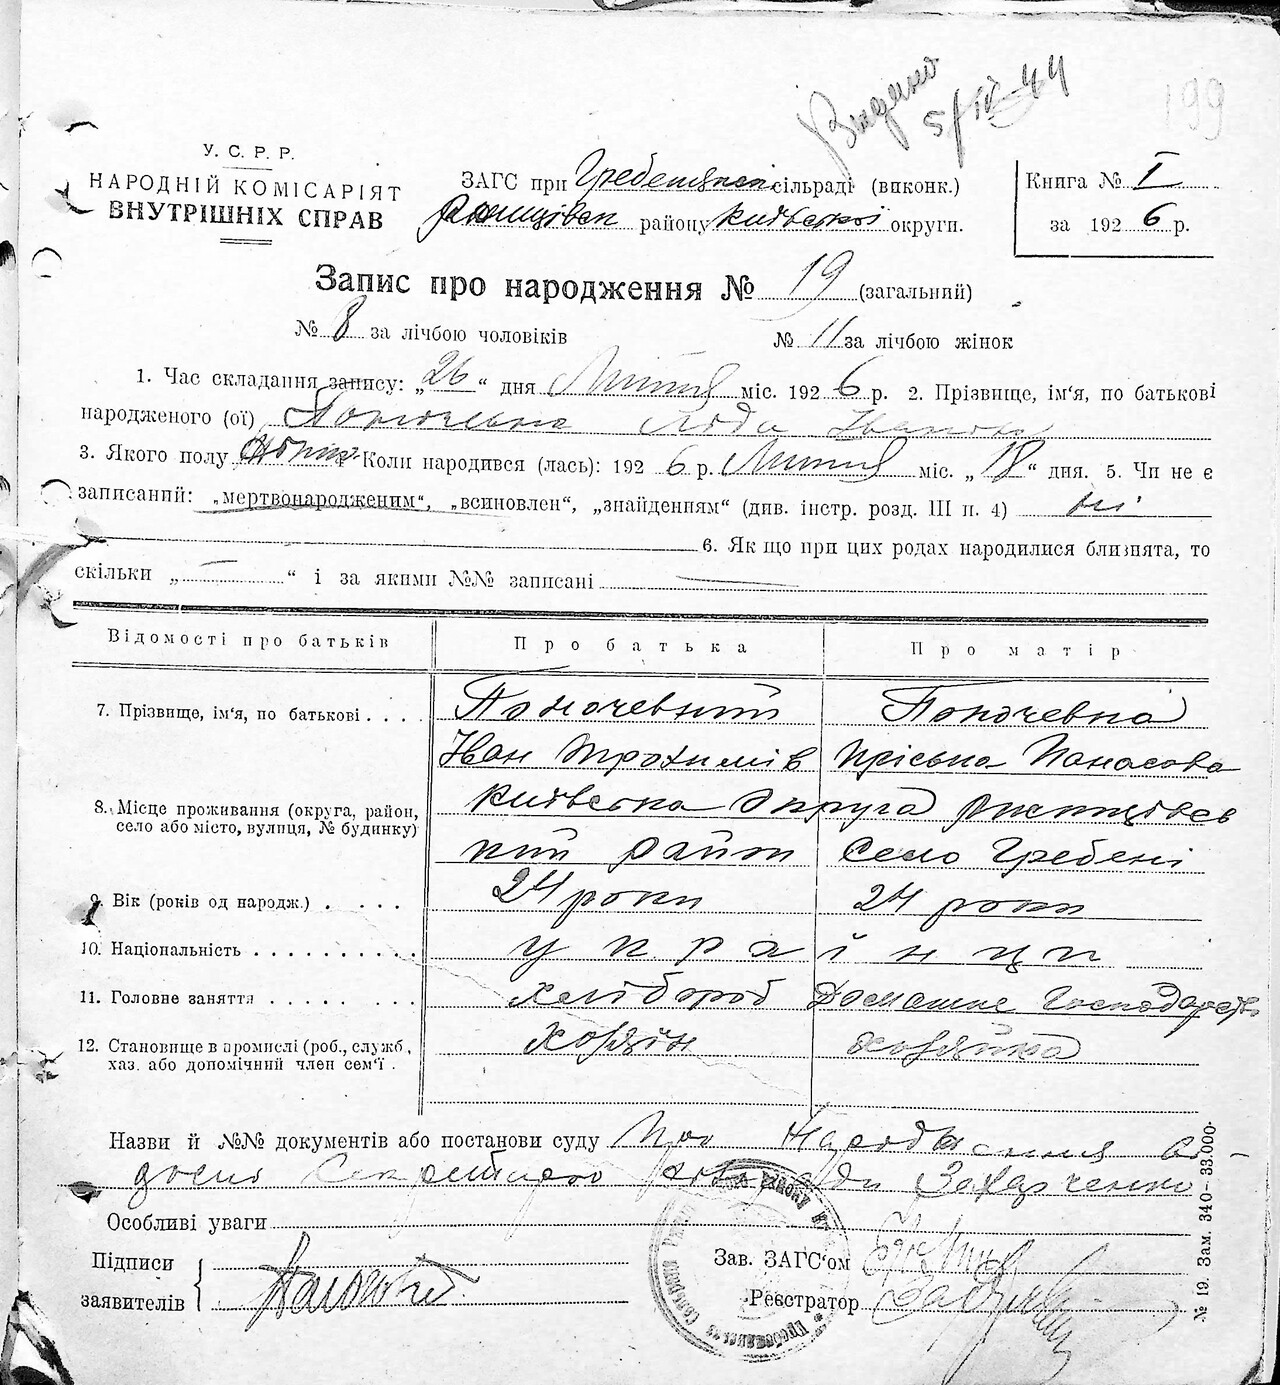 Видано
5/IV-44
199
У. С. Р. Р.
НАРОДНІЙ КОМІСАРІЯТ
ВНУТРІШНІХ СПРАВ
ЗАГС при Гребенянсп сільраді (виконк.)
району Київської округи.
Книга № I
за 1926 р.
Запис про народження № 19 (загальний)
№ 8 за лічбою чоловіків № 11 за лічбою жінок
1. Час складання запису: „26“ дня Липня міс. 1926 р. 2. Прізвище, ім‘я, по батькові
народженого (ої) Поночевна Ліда Іванов
3. Якого полу 4. Коли народився (лась): 1926 р. Липня міс. „18“ дня. 5. Чи не є
записаний: „мертвонародженим“, „всиновлен“, „знайденням“ (див. інстр. розд. III п. 4) ні
6. Як що при цих родах народилися близнята, то
скільки „ — “ і за якими №№ записані —
Відомості про батьків Про батька Про матір
7. Прізвище, ім‘я, по батькові . . . . Поночевний Поночевна
Іван Трохимів Пріська Панасова
8. Місце проживання (округа, район, село або місто, вулиця, № будинку) Київська Округа Ржищівсь
кий район Село Гребені
9. Вік (років од народж.) . . . . 24 роки 24 роки
10. Національність . . . . . . . . . . українци
11. Головне заняття . . . . . . . хлібороб Домашне Господарств
12. Становище в промислі (роб., служб, хазяїн хазяйка
хаз. або допомічний член сем‘ї .
Назви й №№ документів або постанови суду Про Народження
Секретарю сільради Захарченко
Особливі уваги
Підписи
заявителів
Зав. ЗАГС‘ом
Реєстратор
№ 19. Зам. 340—33.000-